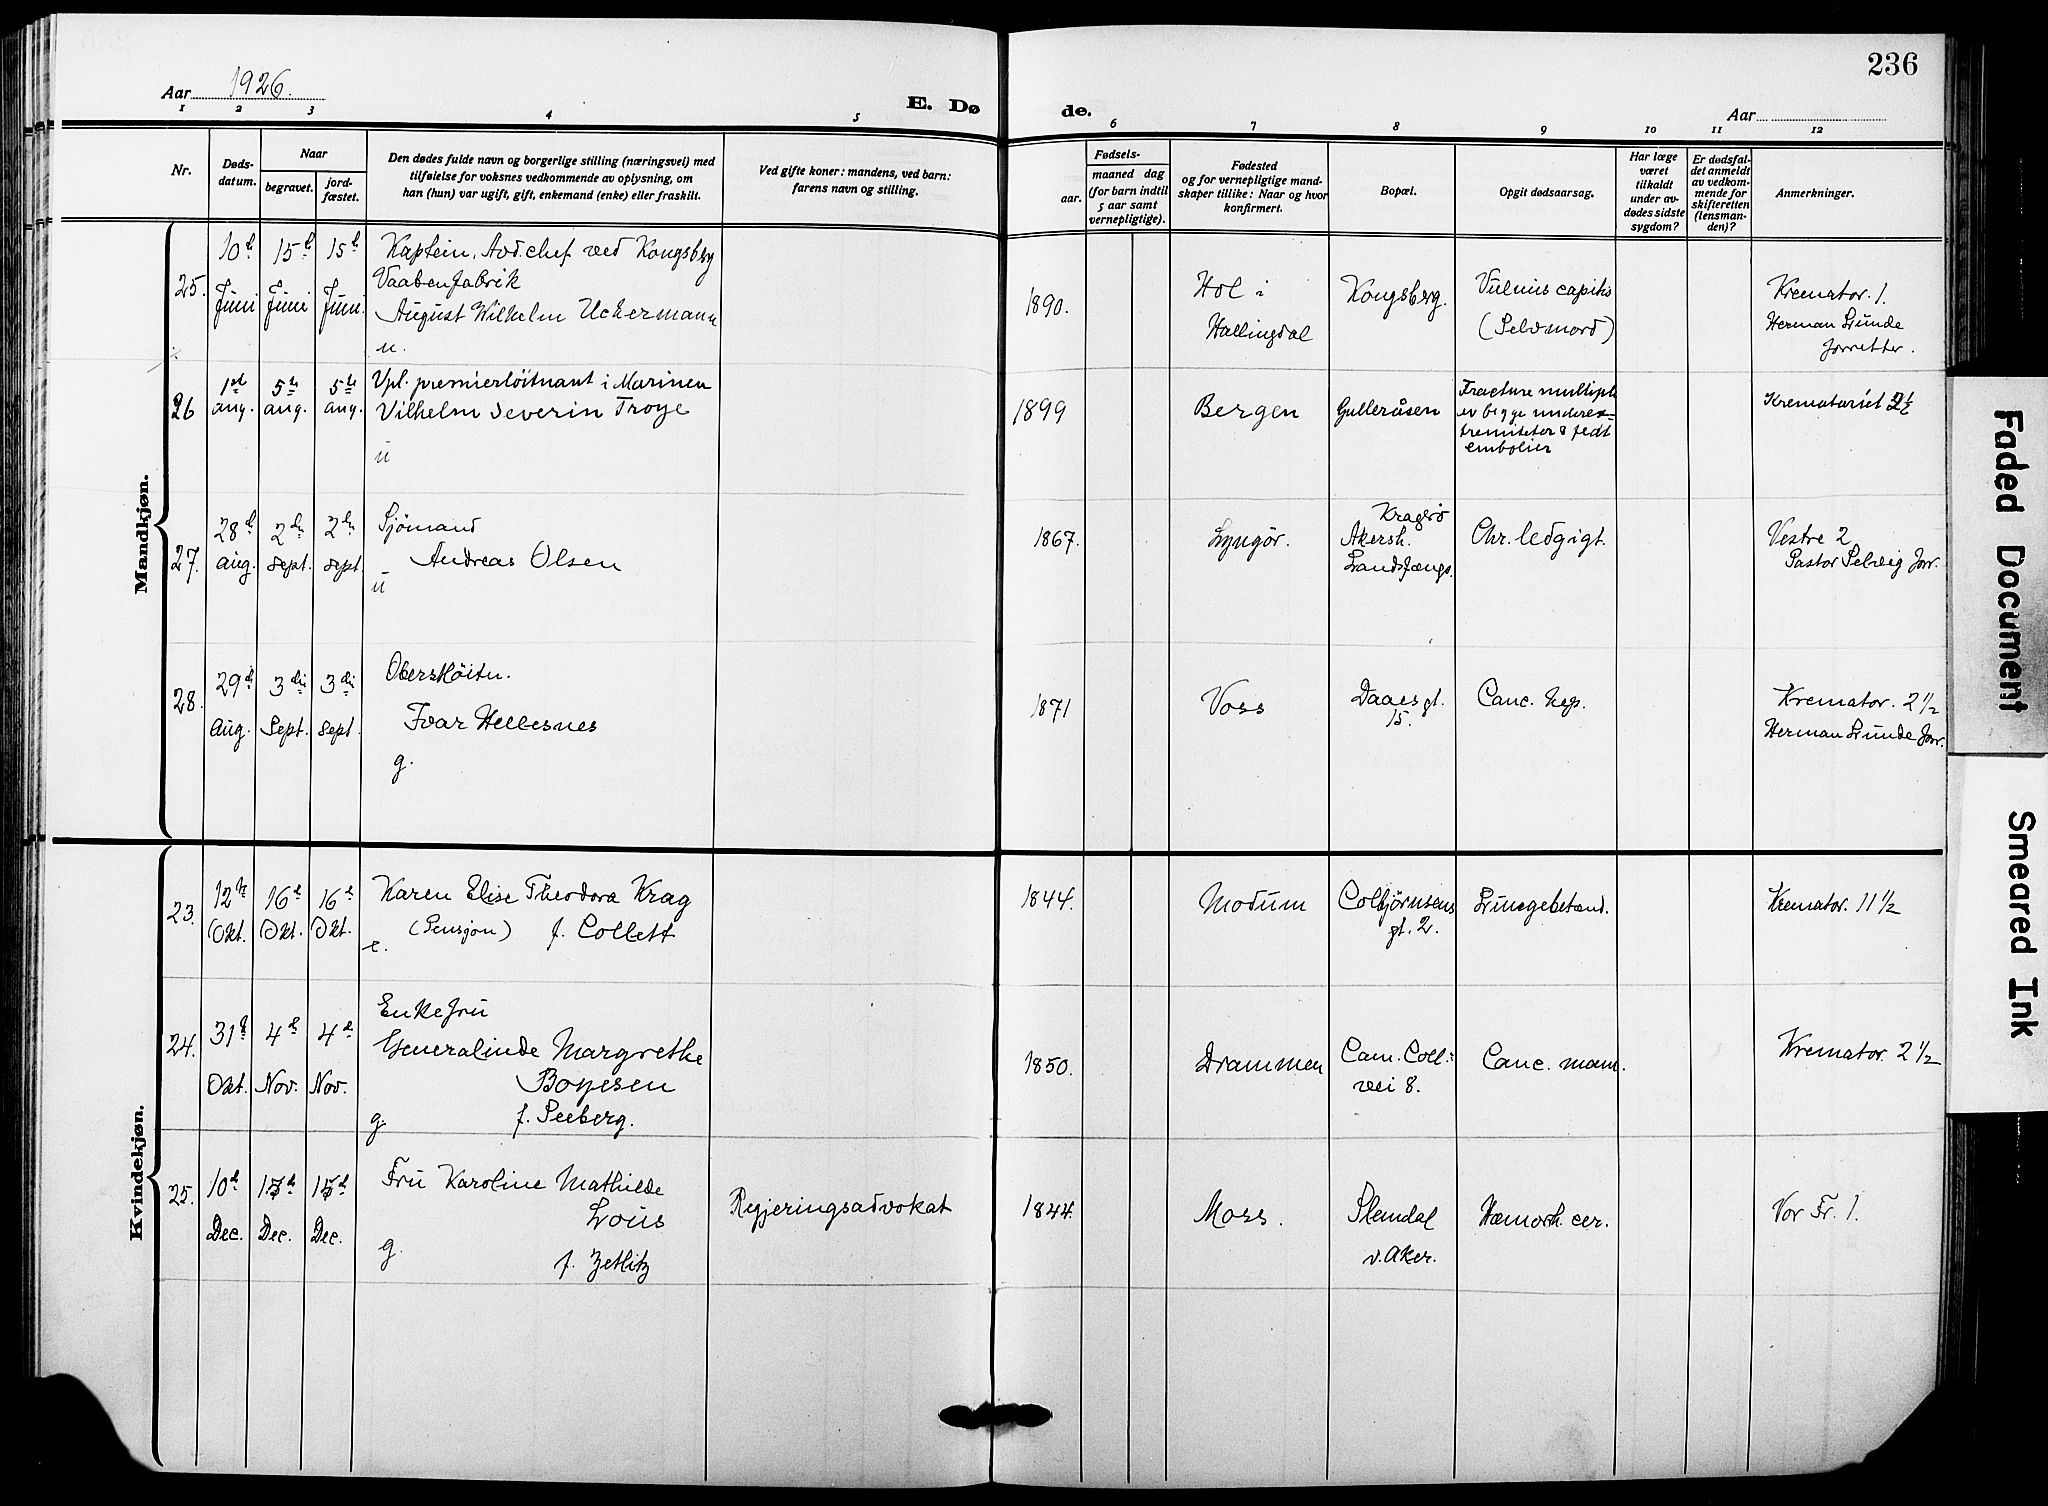 236
Aar 1926.
E. Døde.
Aar
1 2 3 4 5 6 7 8 9 10 11 12
Nr.
Døds-
datum.
Naar
begravet.
jord-
fæstet.
Den dødes fulde navn og borgerlige stilling (næringsvei) med
tilføielse for voksnes vedkommende av oplysning, om
han (hun) var ugift, gift, enkemand (enke) eller fraskilt.
Ved gifte koner: mandens, ved barn:
farens navn og stilling.
Fødsels-
aar.
maaned dag
(for barn indtil
5 aar samt
vernepligtige).
Fødested
og for vernepligtige mand-
skaper tillike: Naar og hvor
konfirmert.
Bopæl.
Opgit dødsaarsag.
Har læge
været
tilkaldt
under av-
dødes sidste
sygdom?
Er dødsfal-
det anmeldt
av vedkom-
mende for
skifteretten
(lensman-
den)?
Anmerkninger.
Mandkjøn.
25.
10de Juni
15de Juni
15de Juni
Kaptein, Avd.chef ved Kongsberg
Vaabenfabrik
August Wilhelm Uckermann
u.
1890.
Hol i
Hallingdal
Kongsberg.
Vulnus capitis
(Selvmord)
Kremator. 1.
Herman Lunde
forretter.
26
1ste aug.
5te aug.
5te aug.
Vpl. premierløitnant i Marinen
Vilhelm Severin Troye
u
1899
Bergen
Gulleråsen
Fracture multiple
ev begge underex-
tremiteter & fedt
embolier
Krematoriet 2½
27.
28de aug.
2den sept.
2den sept.
Sjömand
Andreas Olsen
u
1867.
Lyngör.
Kragerö
Akersh.
Landsfængs.
Chr. ledgigt.
Vestre 2
Pastor Selvig forr.
28.
29de aug.
3die Sept.
3die sept.
Oberstlöitn.
Ivar Hellesnes
g.
1871
Voss
Daaesgt.
15.
Canc. hep.
Kremator. 2 1/2
Herman Lunde forr.
Kvindekjøn.
23.
12te Okt.
16de Okt.
16de Okt.
Karen Elise Theodora Krag
(Pensjon) f. Collett
e.
1844.
Modum
Colbjörnsens
gt. 2.
Lungebetænd.
Kremator. 11 1/2
24.
31te Okt.
4de Nov.
4de Nov.
Enkefru
Generalinde Margrethe
Boyesen
g. f. Seeberg.
1850.
Drammen
Cam. Coll:
vei 8.
Canc. mam.
Kremator. 2 1/2
25.
10de Dec.
15de Dec.
15de Dec.
Fru Karoline Mathilde
Lous
g.
f. Zetlitz
Regjeringsadvokat
1844.
Moss.
Slemdal
v. Aker.
Hæmorh. cer.
Vor Fr. 1.
Faded Document
Smeared Ink